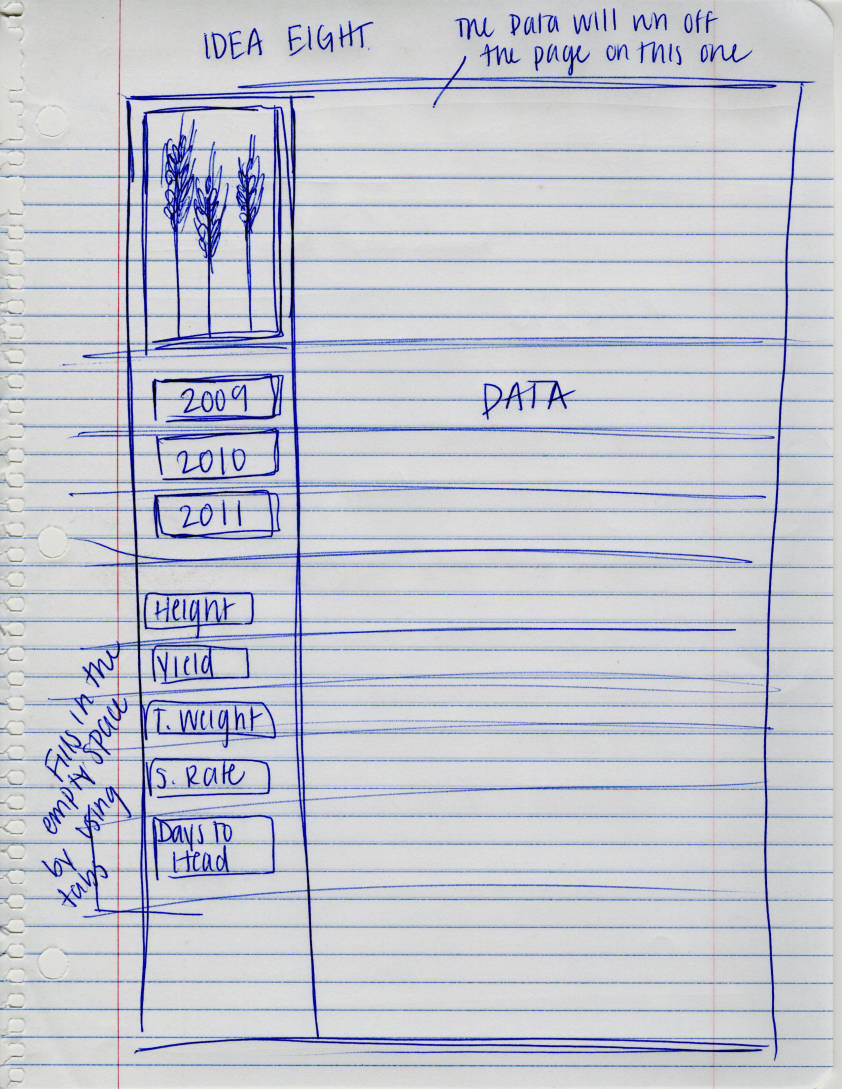 IDEA EIGHT.
The Data will run off
the page on this one
2009
DATA
2010
2011
Height
Yield
T. Weight
S. Rate
Days to
Head
Fills in the
empty space
by using
tabs